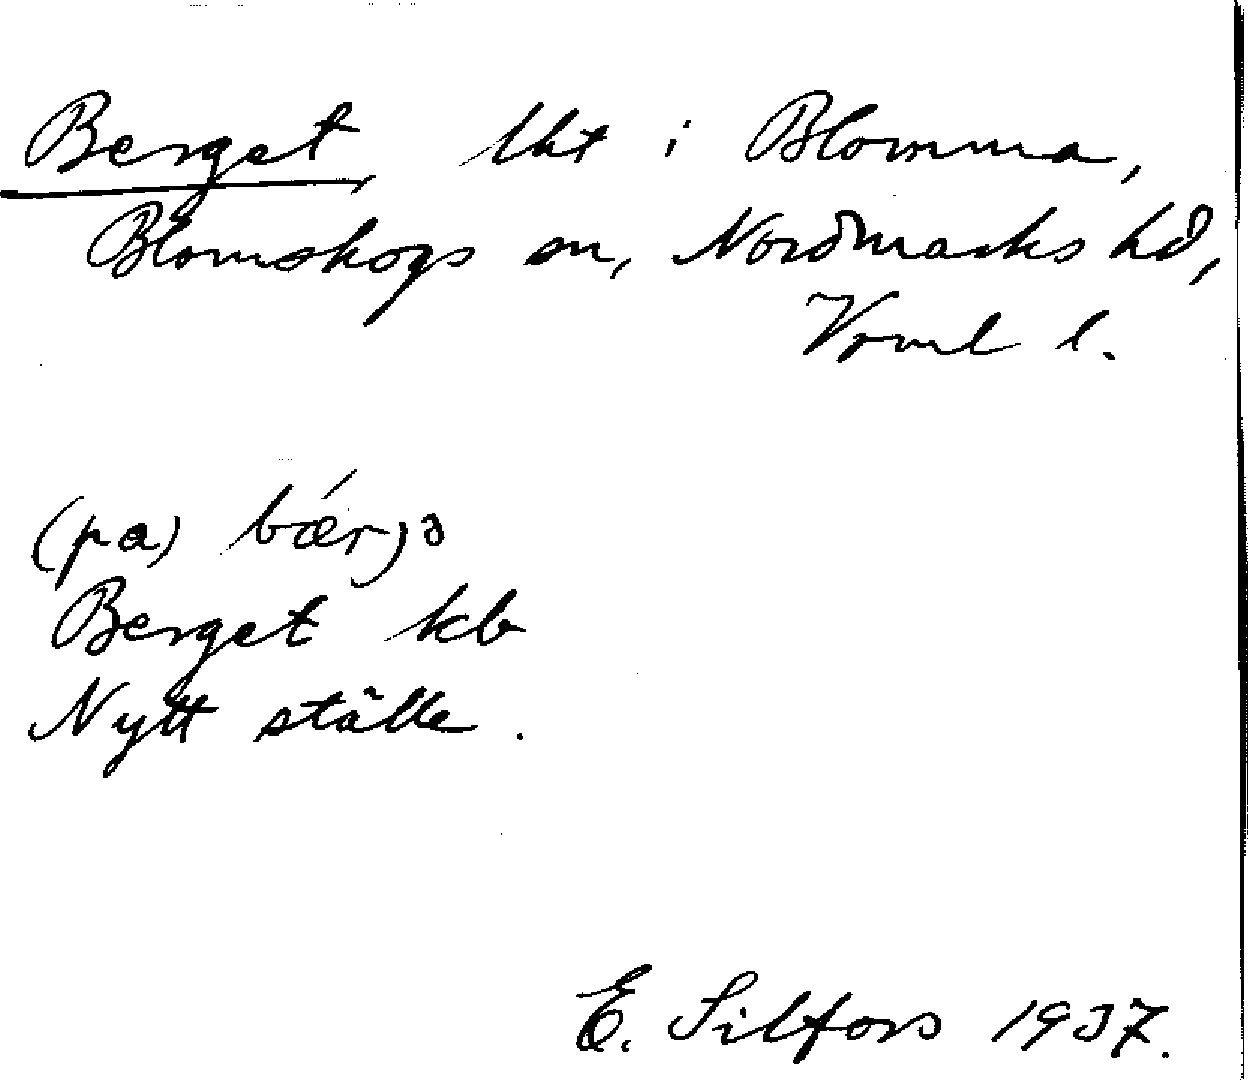 Berget, lht i Blomma,
Blomskogs sn, Nordmarks hd,
Vrml l.
(pa) bǽrjə
Berget kb
Nytt ställe.
E. Silfors 1937.